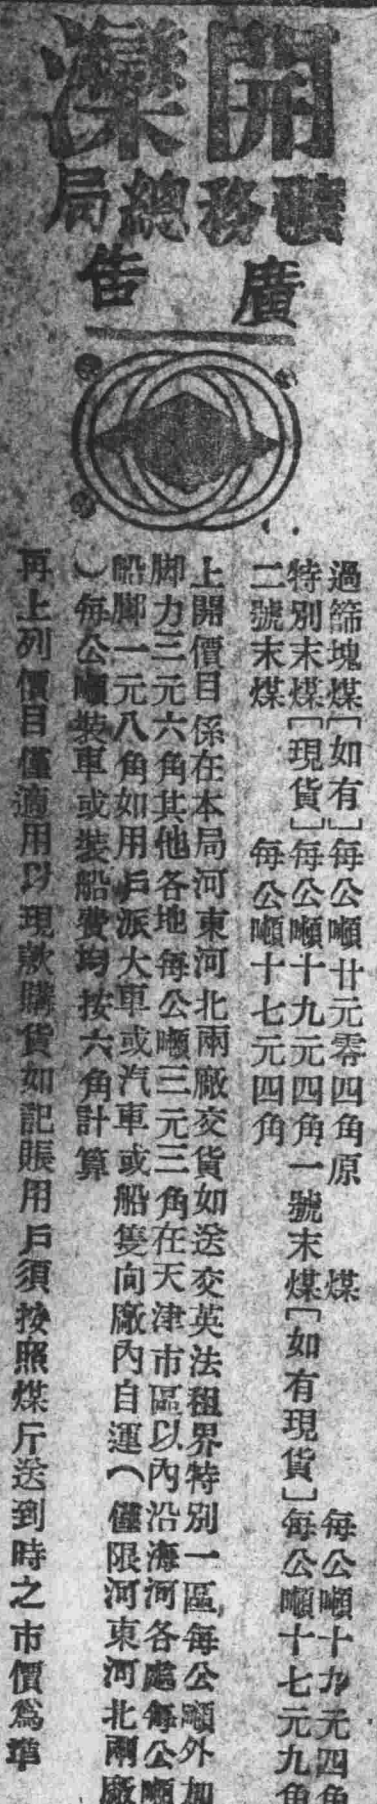 開灤
礦務總局
廣告
過篩塊煤［如有］每公噸廿元零四角原　煤　每公噸十九元四角
特別末煤［現貨］每公噸十九元四角一號末煤［如有現貨］每公噸十七元九角
二號末煤　每公噸十七元四角
上開價目係在本局河東河北兩廠交貨如送交英法租界特別一區每公噸外加
脚力三元六角其他各地每公噸三元三角在天津市區以內沿海河各處每公噸
船脚一元八角如用戶派大車或汽車或船隻向廠內自運（僅限河東河北兩廠
）每公噸裝車或裝船費均按六角計算
再上列價目僅適用以現款購貨如記賬用戶須按照煤斤送到時之市價爲準